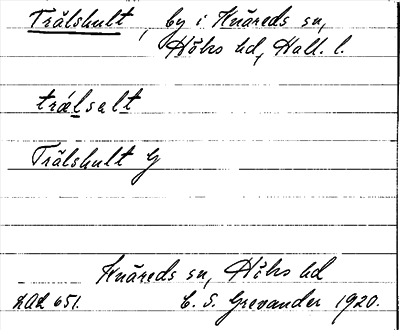 Trälshult, by i Knäreds sn,
Höks hd, Hall. l.
trælsalt
Trälshult G
Knäreds sn, Höks hd
LAL 651. C. S. Grevander 1920.